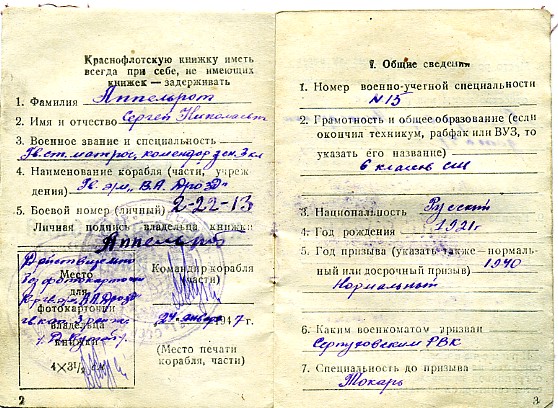 Краснофлотскую книжку иметь
всегда при себе, не имеющих
книжек — задерживать
1. Фамилия Аппельрот
2. Имя и отчество Сергей Николаевич
3. Военное звание и специальность
Гв. ст. матрос, комендор зен. 3 кл
4. Наименование корабля (части, учреж-
дения) Гв. э/м, В.А. Дрозд
5. Боевой номер (личный) 2-22-13
Личная подпись владельца книжки
Аппельрот
Действительно
без фотокарточки
Место
для
фотокарточки
владельца
книжки
4×3½ см
Командир корабля
(части)
24 января 1947 г.
(Место печати
корабля, части)
2
I. Общие сведения
1. Номер военно-учетной специальности
№ 15
2. Грамотность и общее образование (если
окончил техникум, рабфак или ВУЗ, то
указать его название)
6 классов сш
3. Национальность Русский
4. Год рождения 1921 г
5. Год призыва (указать также — нормаль-
ный или досрочный призыв) 1940
Нормальный
6. Каким военкоматом призван
Серпуховским РВК
7. Специальность до призыва
Токарь
3